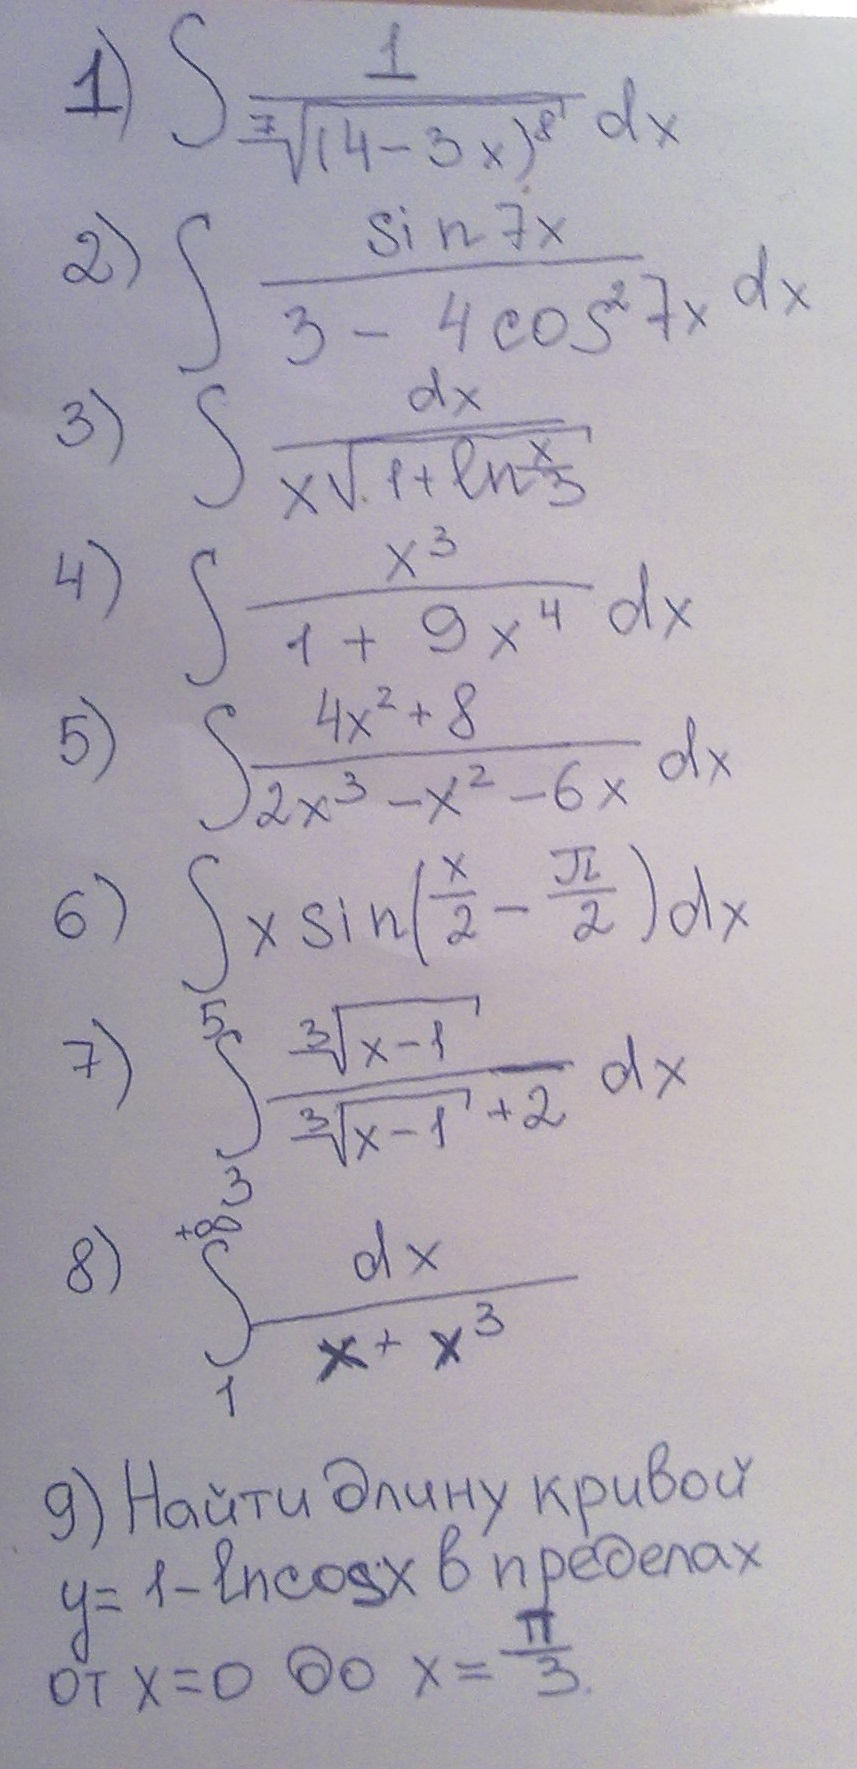 1) ∫ 1 / ⁷√(4-3x)⁸ dx
2) ∫ sin7x / (3 - 4cos²7x) dx
3) ∫ dx / (x√(1+ln x/3))
4) ∫ x³ / (1 + 9x⁴) dx
5) ∫ (4x²+8) / (2x³-x²-6x) dx
6) ∫ x sin(x/2 - π/2) dx
7) ∫₃⁵ ³√(x-1) / (³√(x-1) + 2) dx
8) ∫₁^{+∞} dx / (x + x³)
9) Найти длину кривой
y = 1-lncosx в пределах
от x=0 до x = π/3.